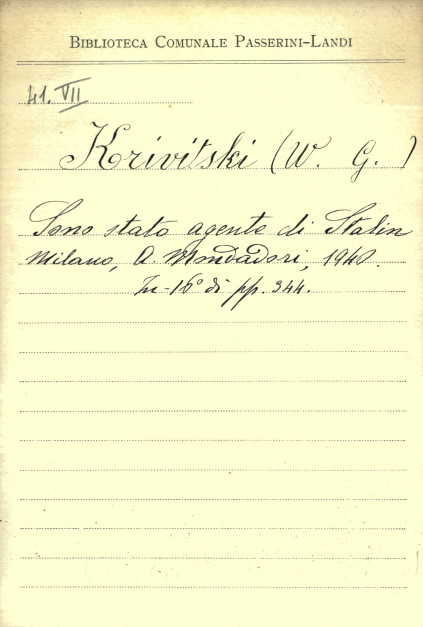 BIBLIOTECA COMUNALE PASSERINI-LANDI
41. VII
Krivitski (W. G.)
Sono stato agente di Stalin
Milano, A. Mondadori, 1940.
In-16° di pp. 344.